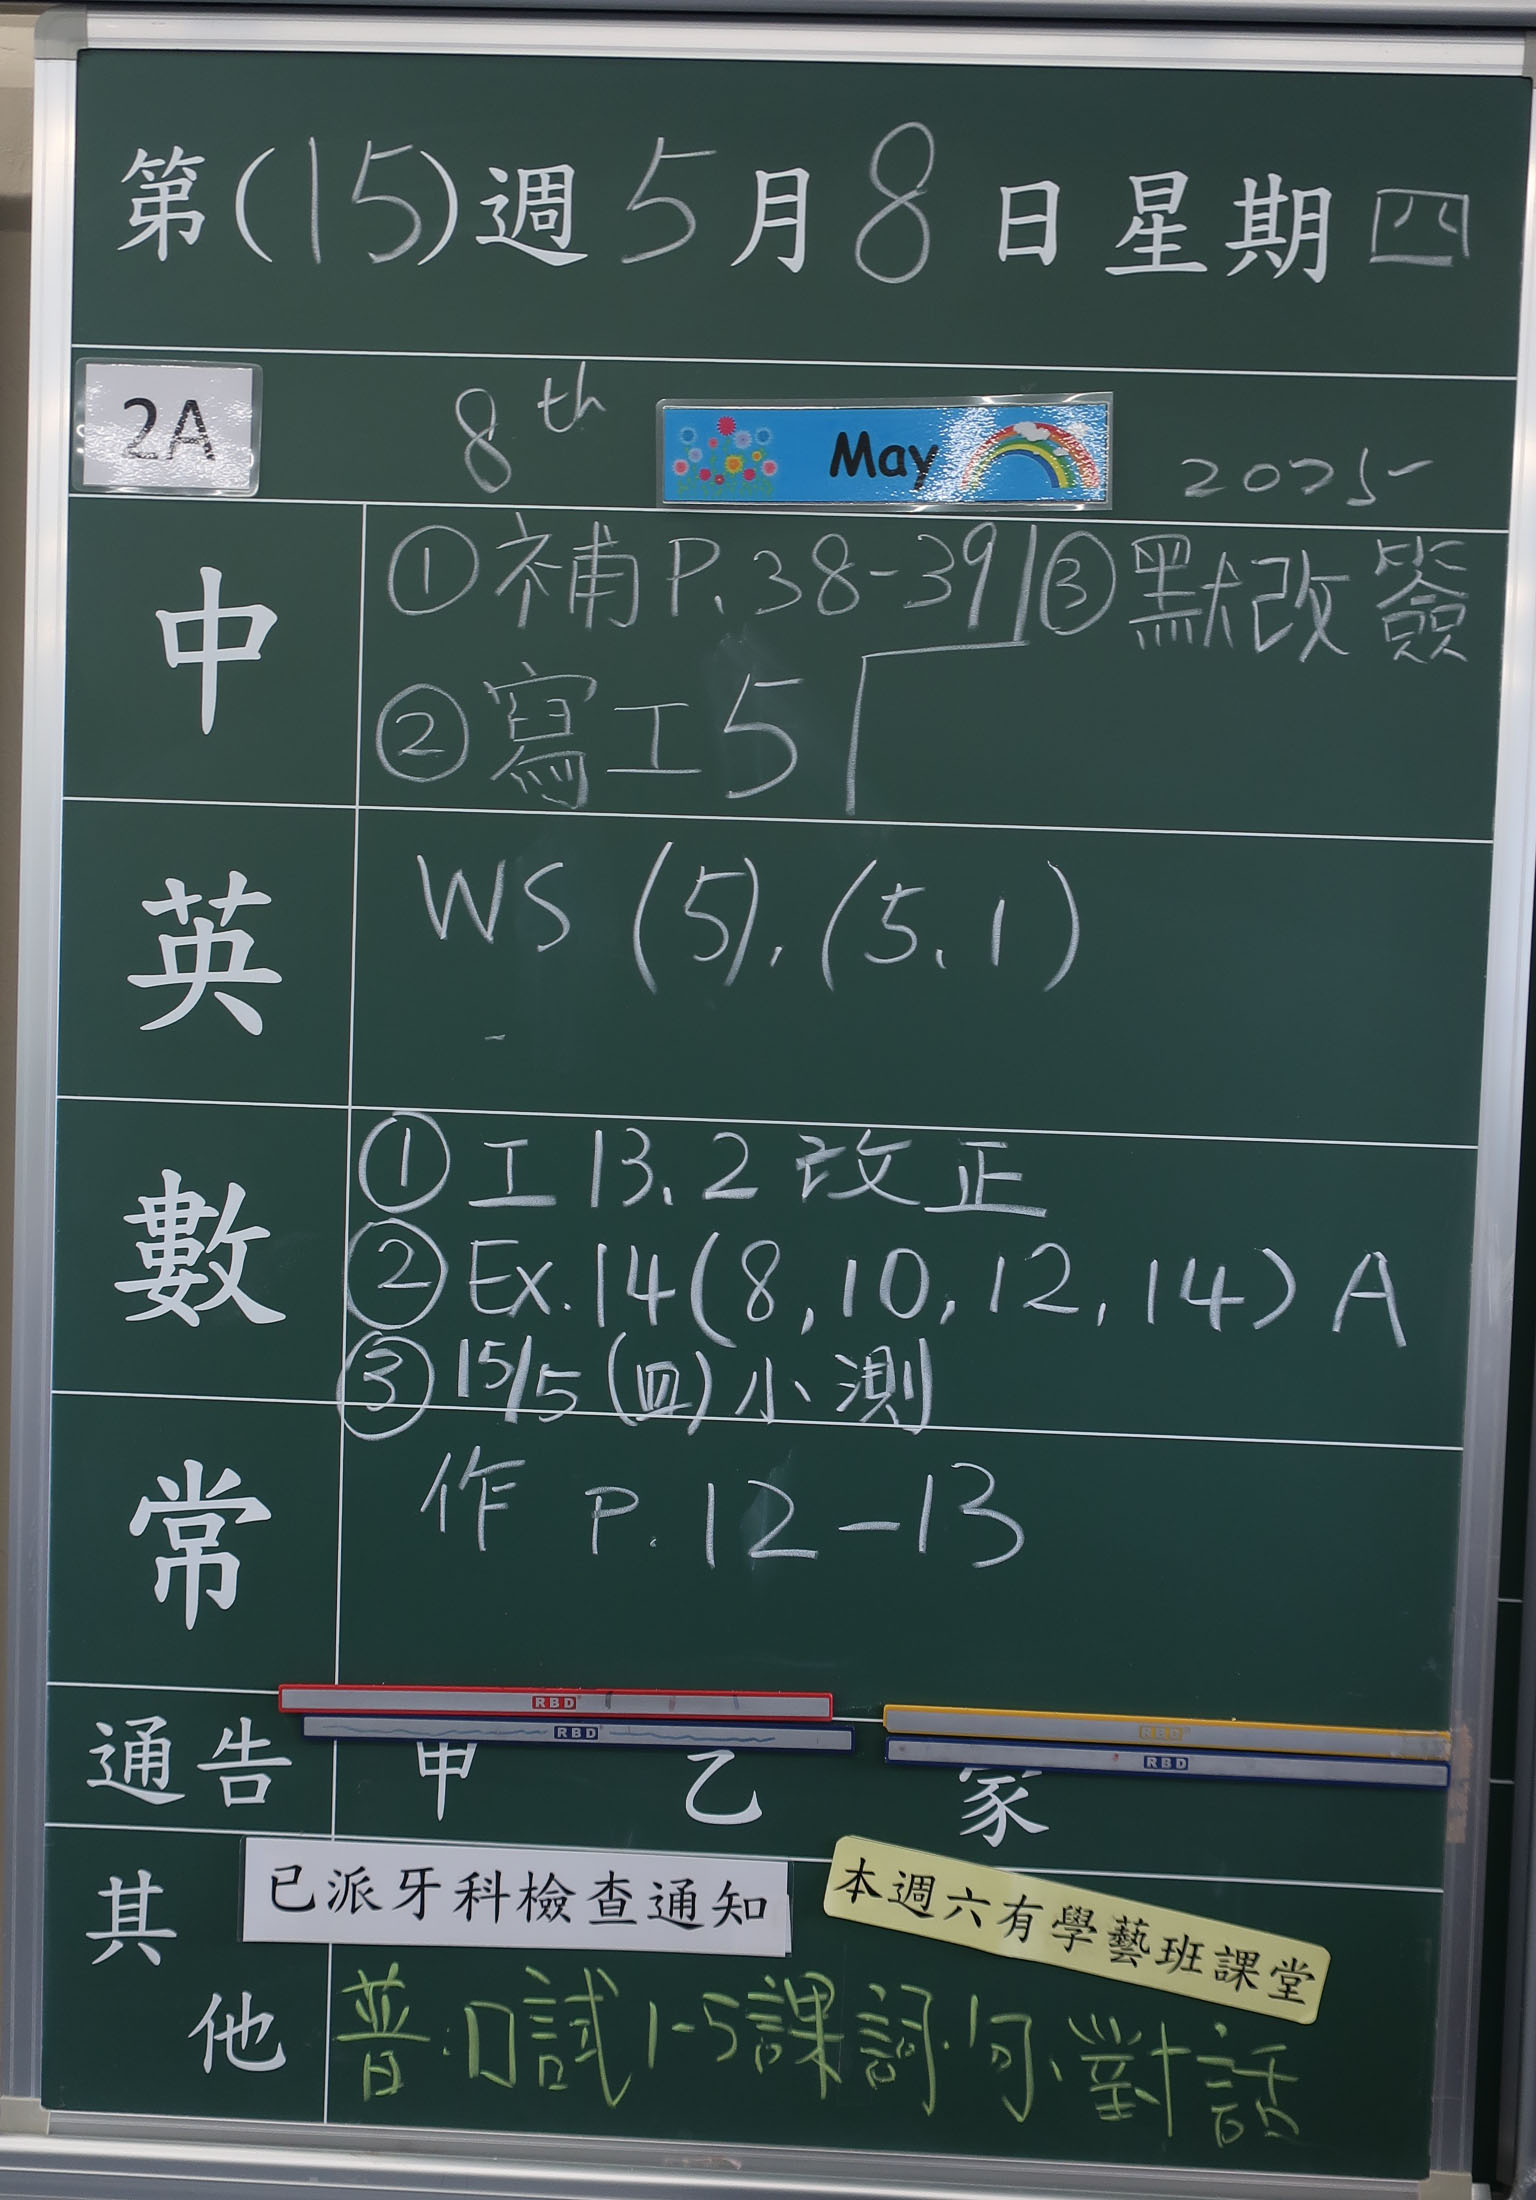 第(15)週5月8日星期四
2A
8th May 2025
中
①補P.38-39
③默改簽
②寫工5
英
WS (5), (5.1)
數
①工13.2改正
②Ex.14(8,10,12,14)A
③15/5(四)小測
常
作 P.12-13
RBD
RBD
RBD
RBD
通告 甲 乙 家
其他
已派牙科檢查通知
本週六有學藝班課堂
普:口試1-5課詞、句、對話